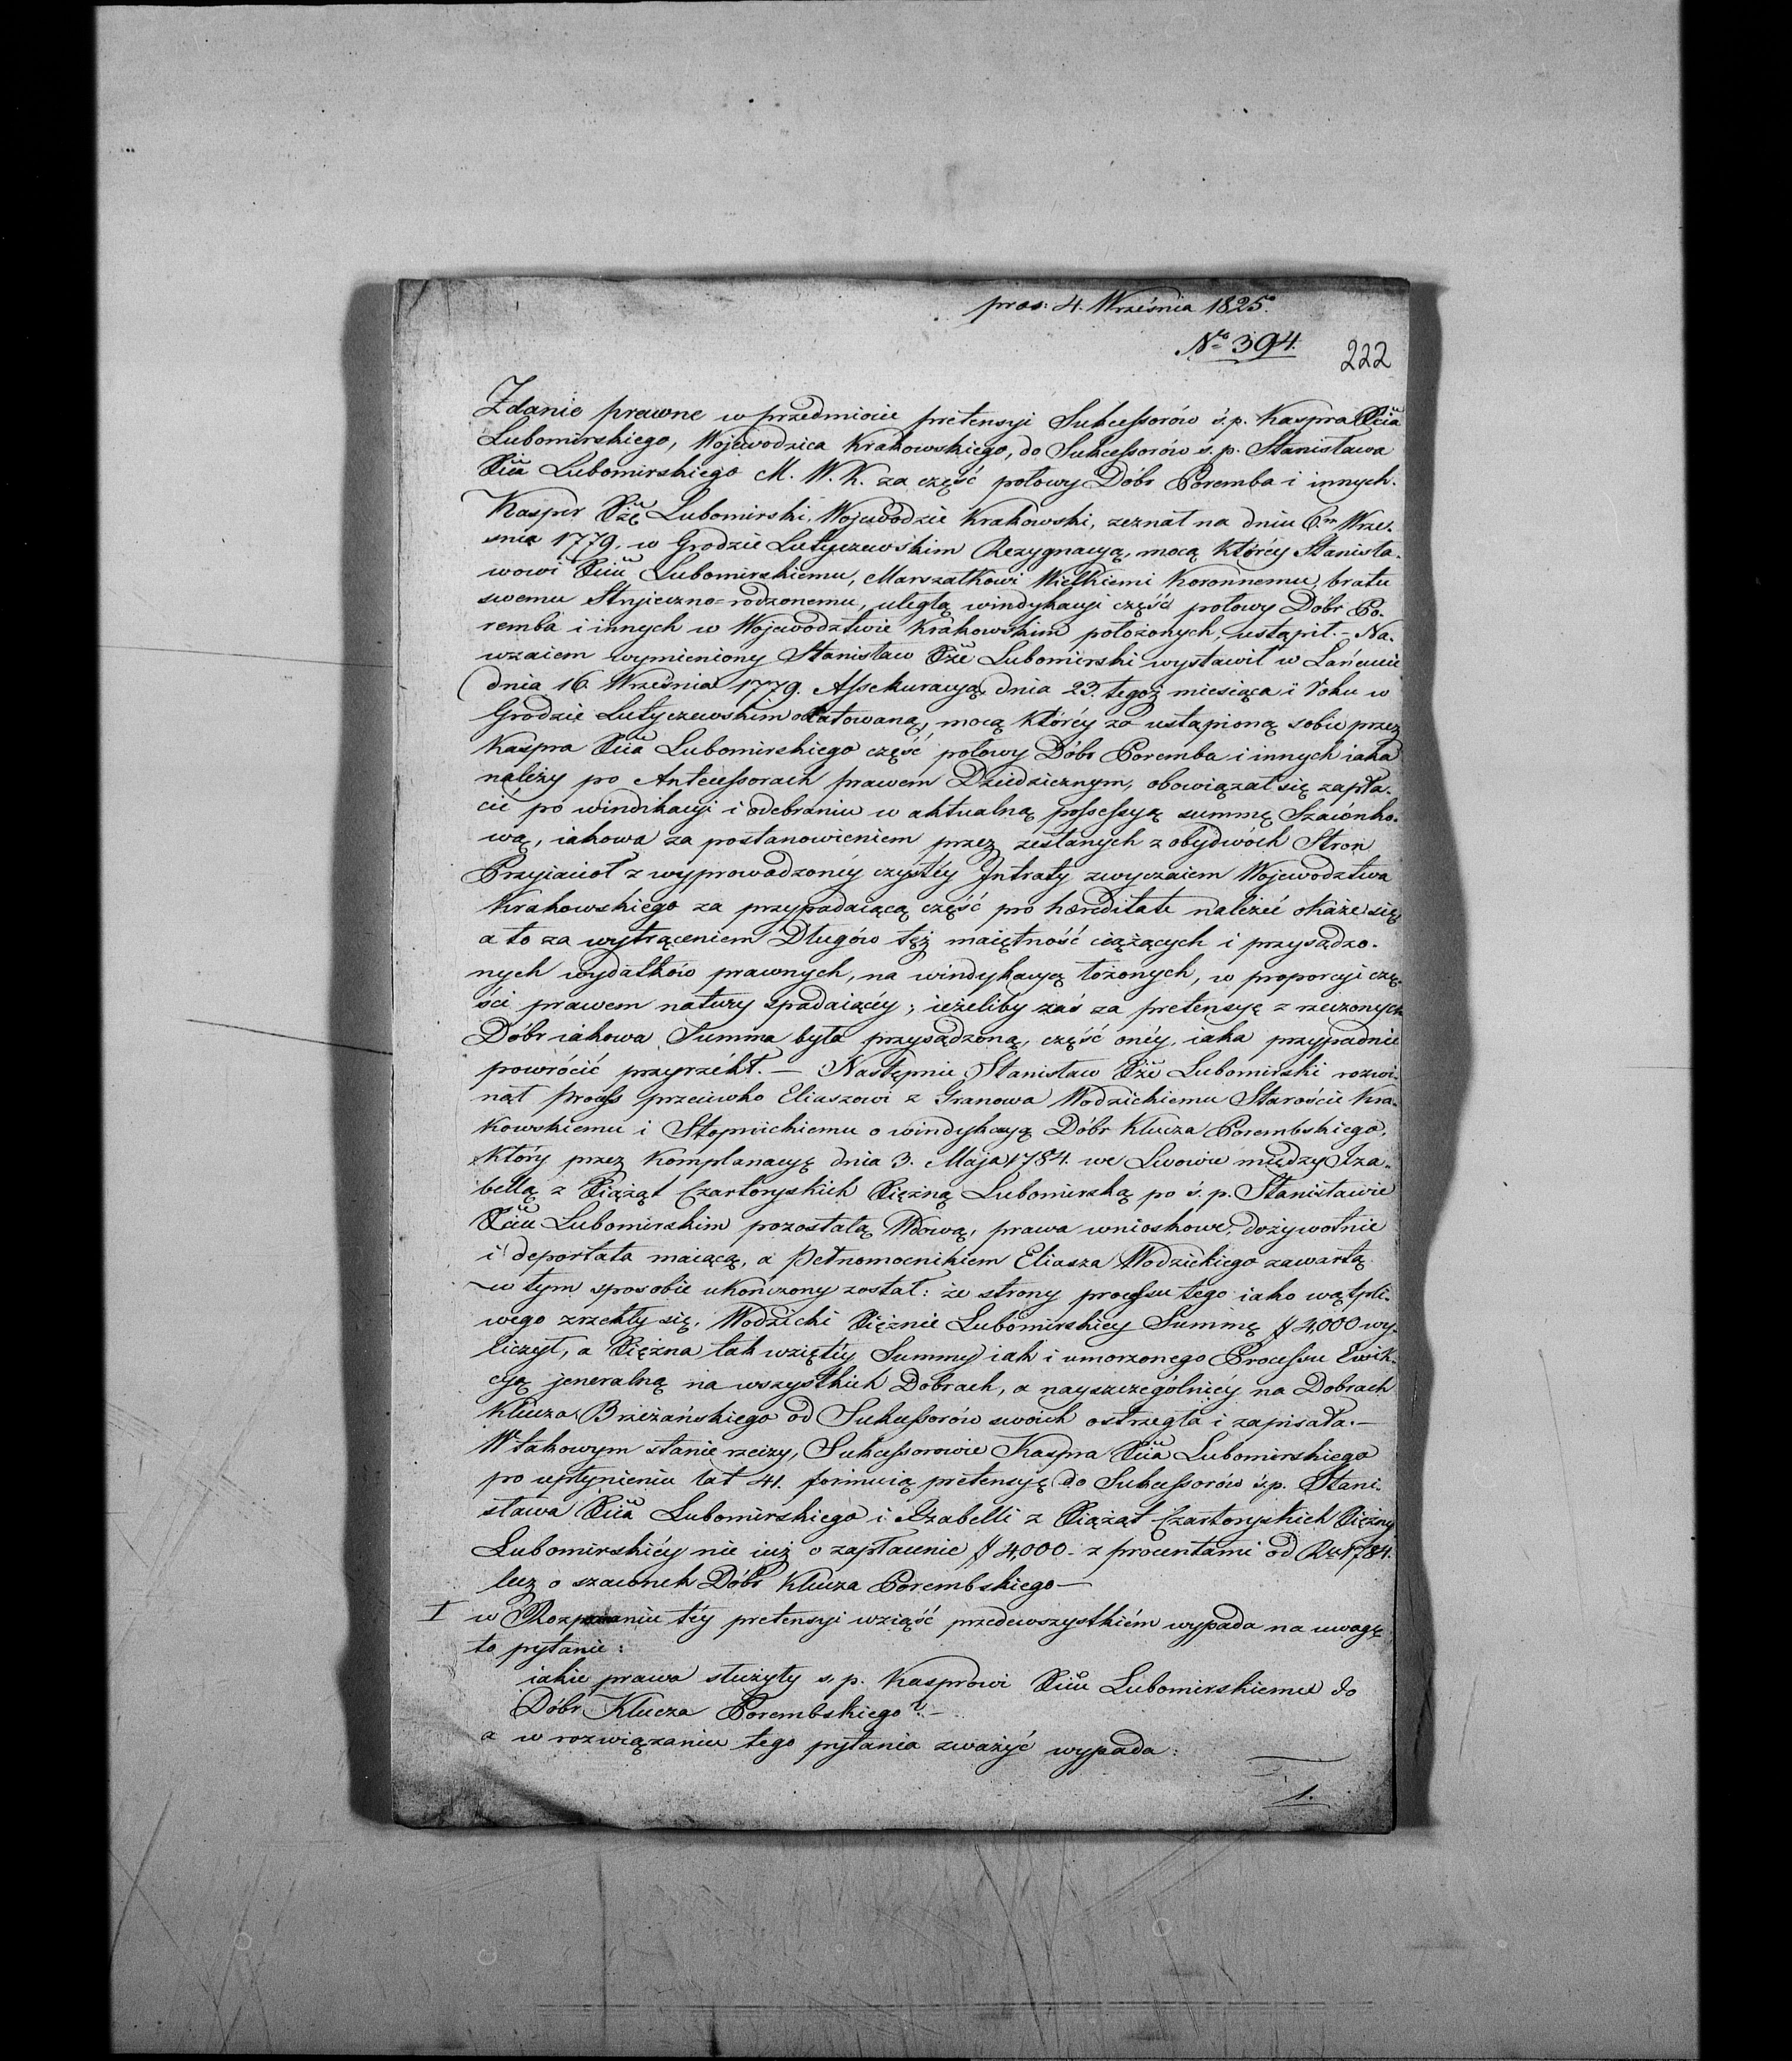 pras: 4. Września 1825.
No 394.
222
Zdanie prawne w przedmiocie pretensyi Sukcessorów ś.p. Kaspra Xcia
Lubomirskiego, Wojewodzica Krakowskiego, do Sukcessorów ś.p. Stanisława
Xcia Lubomirskiego M. W. K. za część połowy Dóbr Poremba i innych.
Kasper Xżę Lubomirski, Wojewodzic Krakowski, zeznał na dniu 6m Wrze-
śnia 1779. w Grodzie Latyczewskim Rezygnacyą, mocą któréy Stanisła-
wowi Xciu Lubomirskiemu, Marszałkowi Wielkiemi Koronnemu, bratu
swemu Stryieczno-rodzonemu, uległą windykacyi część połowy Dóbr Po-
remba i innych w Województwie Krakowskim położonych, ustąpił. - Na-
wzaiem wymieniony Stanisław Xże Lubomirski wystawił w Łańcucie
dnia 16. Września 1779. Assekuracyą dnia 23. tegoż miesiąca i roku w
Grodzie Latyczewskim oblatowaną, mocą któréy za ustąpioną sobie przez
Kaspra Xcia Lubomirskiego część połowy Dóbr Poremba i innych iaka
należy po Antecessorach prawem Dziedzicznym, obowiązał się zapła-
cić po windikacyi i odebraniu w aktualną possessyą summę Szacónko-
wą, iakowa za postanowieniem przez zesłanych z obydwóch Stron
Przyiaciół z wyprowadzonéy czystéy Intraty zwyczaiem Województwa
Krakowskiego za przypadaiącą część pro hæreditate należeć okaże się
a to za wytrąceniem Długów téż maiętność ciążących i przysądzo-
nych wydatków prawnych, na windykacyą łożonych, w proporcyi czę-
ści prawem natury spadaiącéy; ieżeliby zaś za pretensyę z rzeczonych
Dóbr iakowa Summa była przysądzoną, część onéy, iaka przypadnie
powrócić przyrzékł. — Następnie Stanisław Xże Lubomirski rozwi-
nął process przeciwko Eliaszowi z Granowa Wodzickiemu Staroście Kra-
kowskiemu i Stopnickiemu o windykacyą Dóbr Klucza Porembskiego,
który przez Komplanacyę dnia 3. Maja 1784. we Lwowie między Iza-
bellą z Xiążąt Czartoryskich Xiężną Lubomirską po ś.p. Stanisławie
Xciu Lubomirskim pozostałą Wdową, prawa wnioskowe, dożywotnie
i deportata maiącą, a Pełnomocnikiem Eliasza Wodzickiego zawartą
w tym sposobie ukończony został: że strony processu tego iako wątpli-
wego zrzekły się, Wodzicki Xiężnie Lubomirskiey Summę # 4,000 wy-
liczył, a Xiężna tak wziętéy Summy iak i umorzonego Processu Ewik-
cyą jeneralną na wszystkich Dobrach, a nayszczególniéy na Dobrach
Klucza Brzeżańskiego od Sukcessorów swoich ostrzegła i zapisała. —
W takowym stanie rzeczy, Sukcessorowie Kaspra Xcia Lubomirskiego
po upłynieniu lat 41. formuią pretensyę do Sukcessorów ś.p. Stani-
sława Xcia Lubomirskiego i Izabelli z Xiążąt Czartoryskich Xiężny
Lubomirskiéy nie iuż o zapłacenie # 4,000 - z procentami od Ru 1784.
lecz o szacunek Dóbr Klucza Porembskiego —
I w Rozpoznaniu téy pretensyi wziąść przedewszystkiém wypada na uwagę
to pytanie:
iakie prawa służyły ś.p. Kasprowi Xciu Lubomirskiemu do
Dóbr Klucza Porembskiego? -
a w rozwiązaniu tego pytania zważyć wypada:
1.